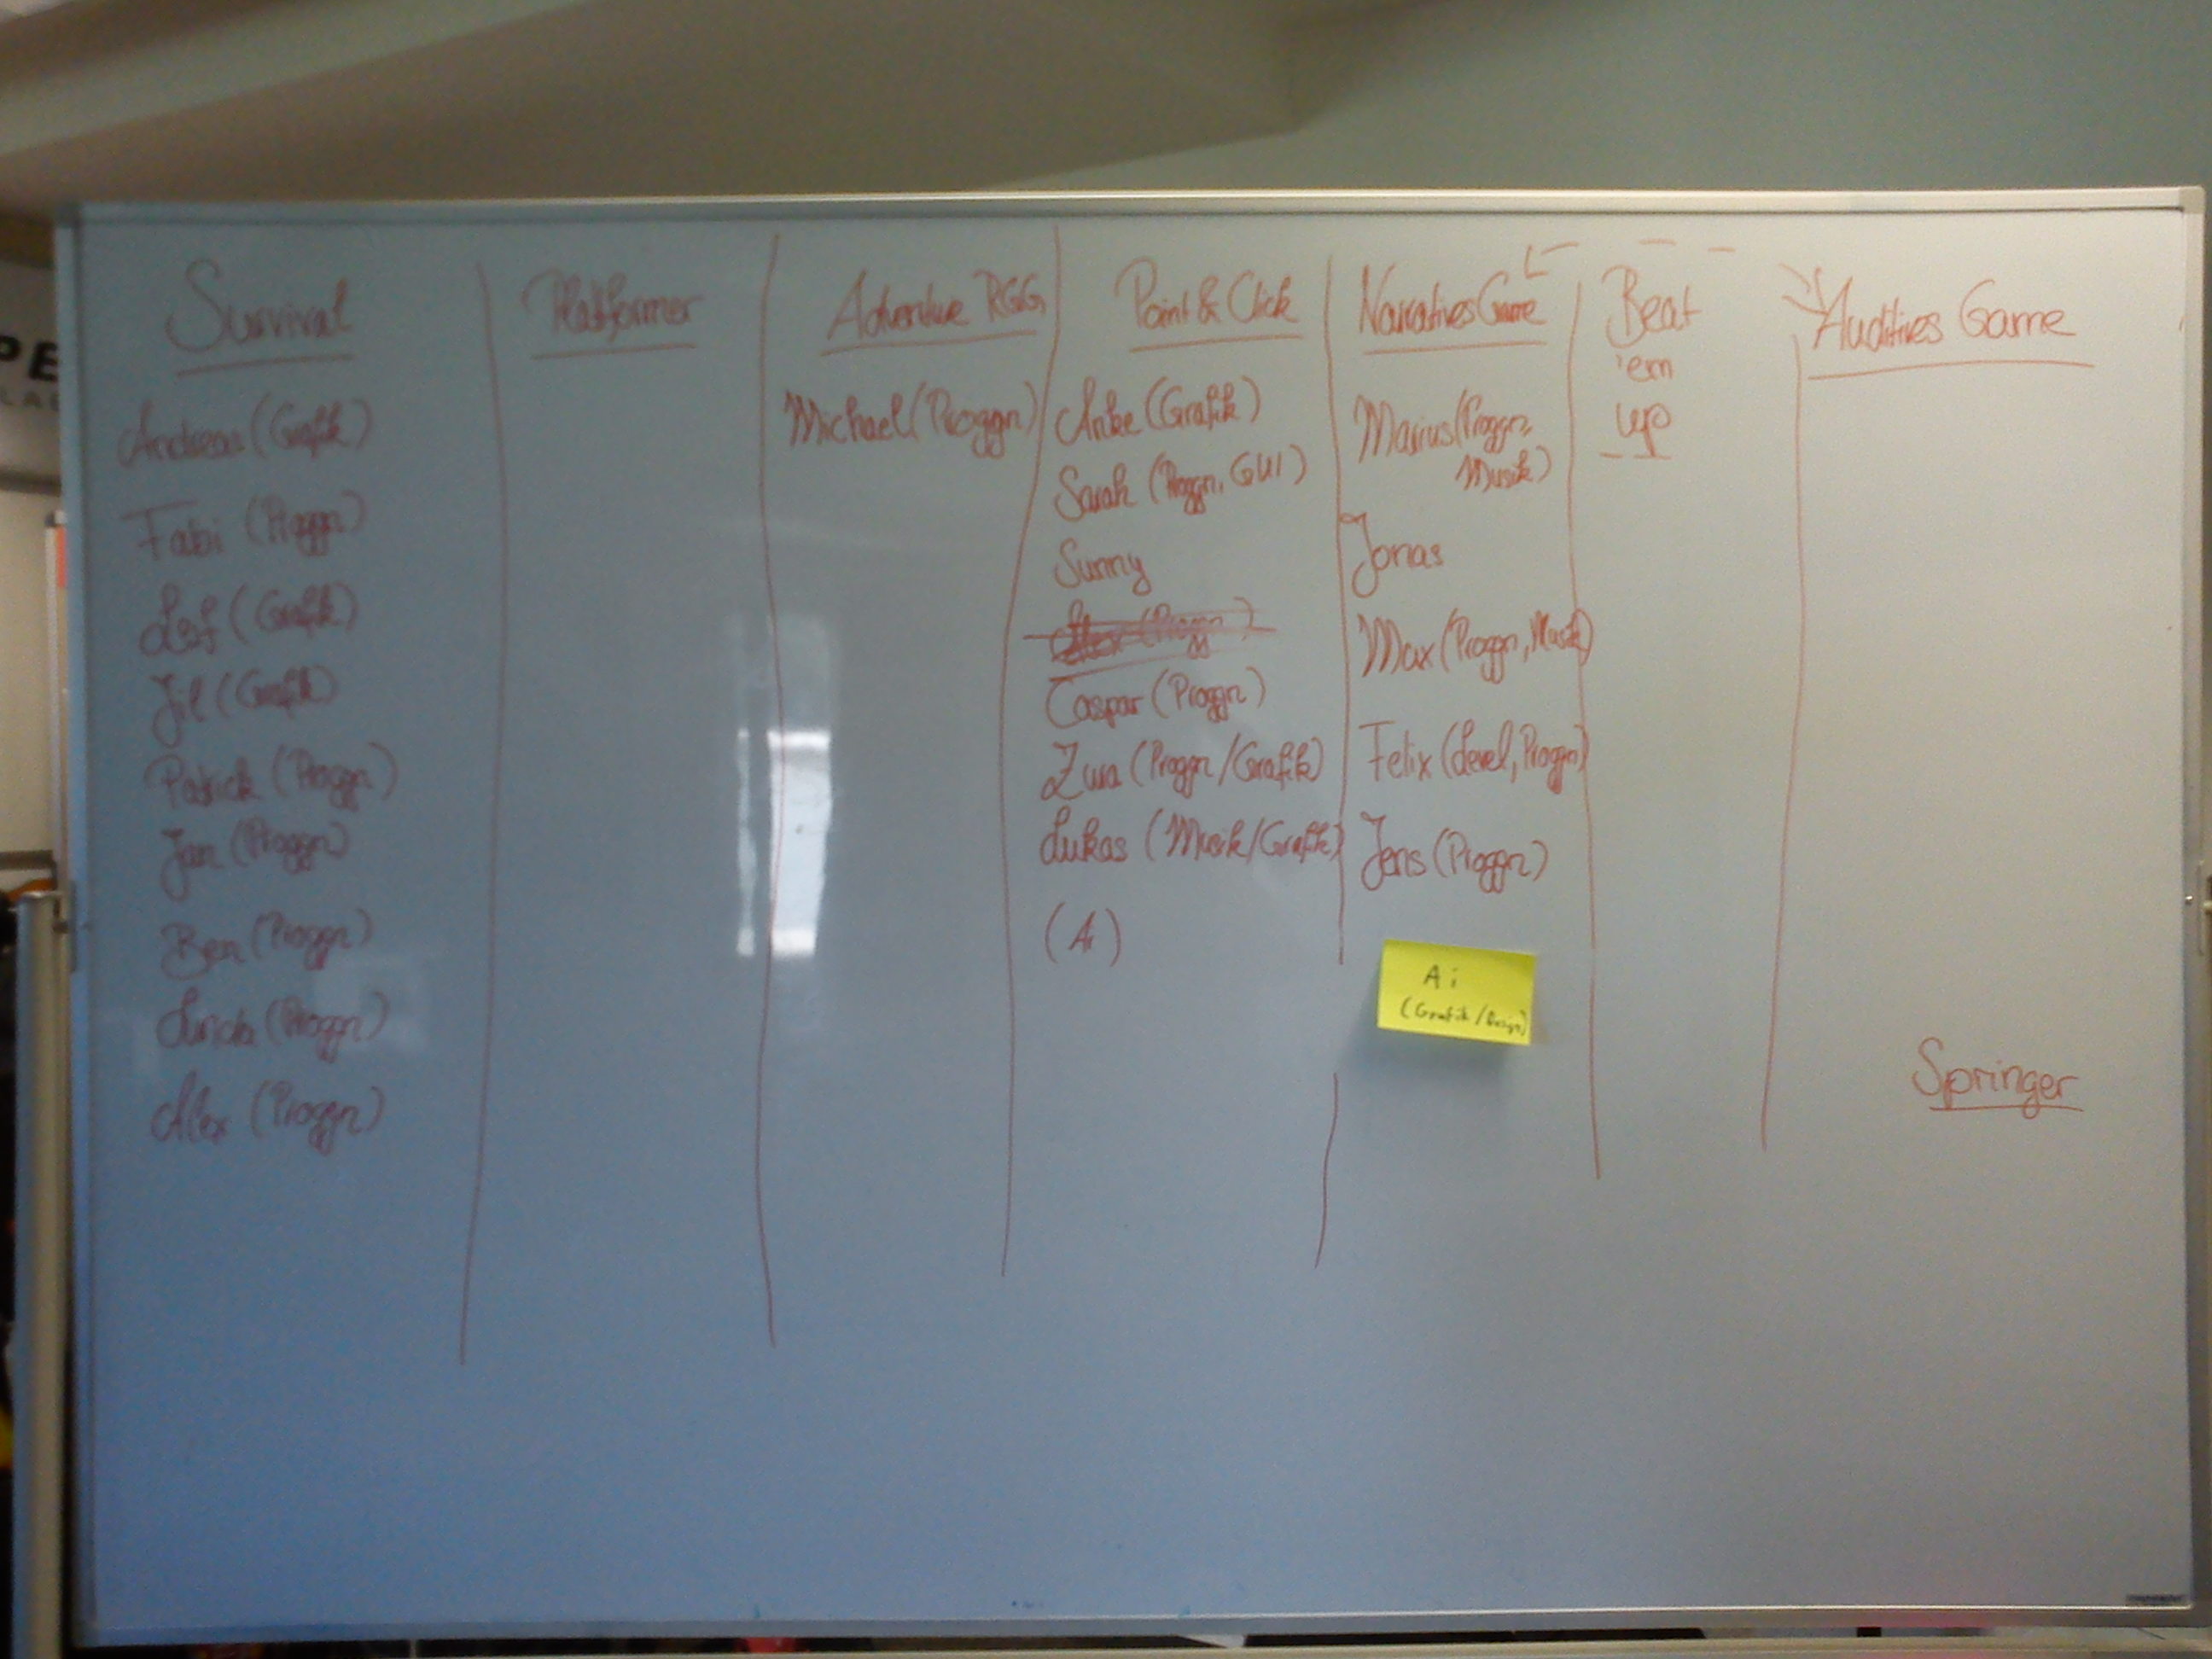 Survival
Andreas (Grafik)
Fabi (Proggn)
Leif (Grafik)
Jil (Grafik)
Patrick (Proggn)
Jan (Proggn)
Ben (Proggn)
Linda (Proggn)
Alex (Proggn)
Platformer
Adventure RGG
Michael (Proggn)
Point & Click
Anke (Grafik)
Sarah (Proggn, GUI)
Sunny
Alex (Proggn)
Caspar (Proggn)
(Proggn/Grafik)
Lukas (Musik/Grafik)
(Ai)
Narratives Game
Marius (Proggn,
Musik)
Jonas
Max (Proggn, Musik)
Felix (Level, Proggn)
Jens (Proggn)
Ai
(Grafik/Design)
Beat
'em
up
Auditives Game
Springer